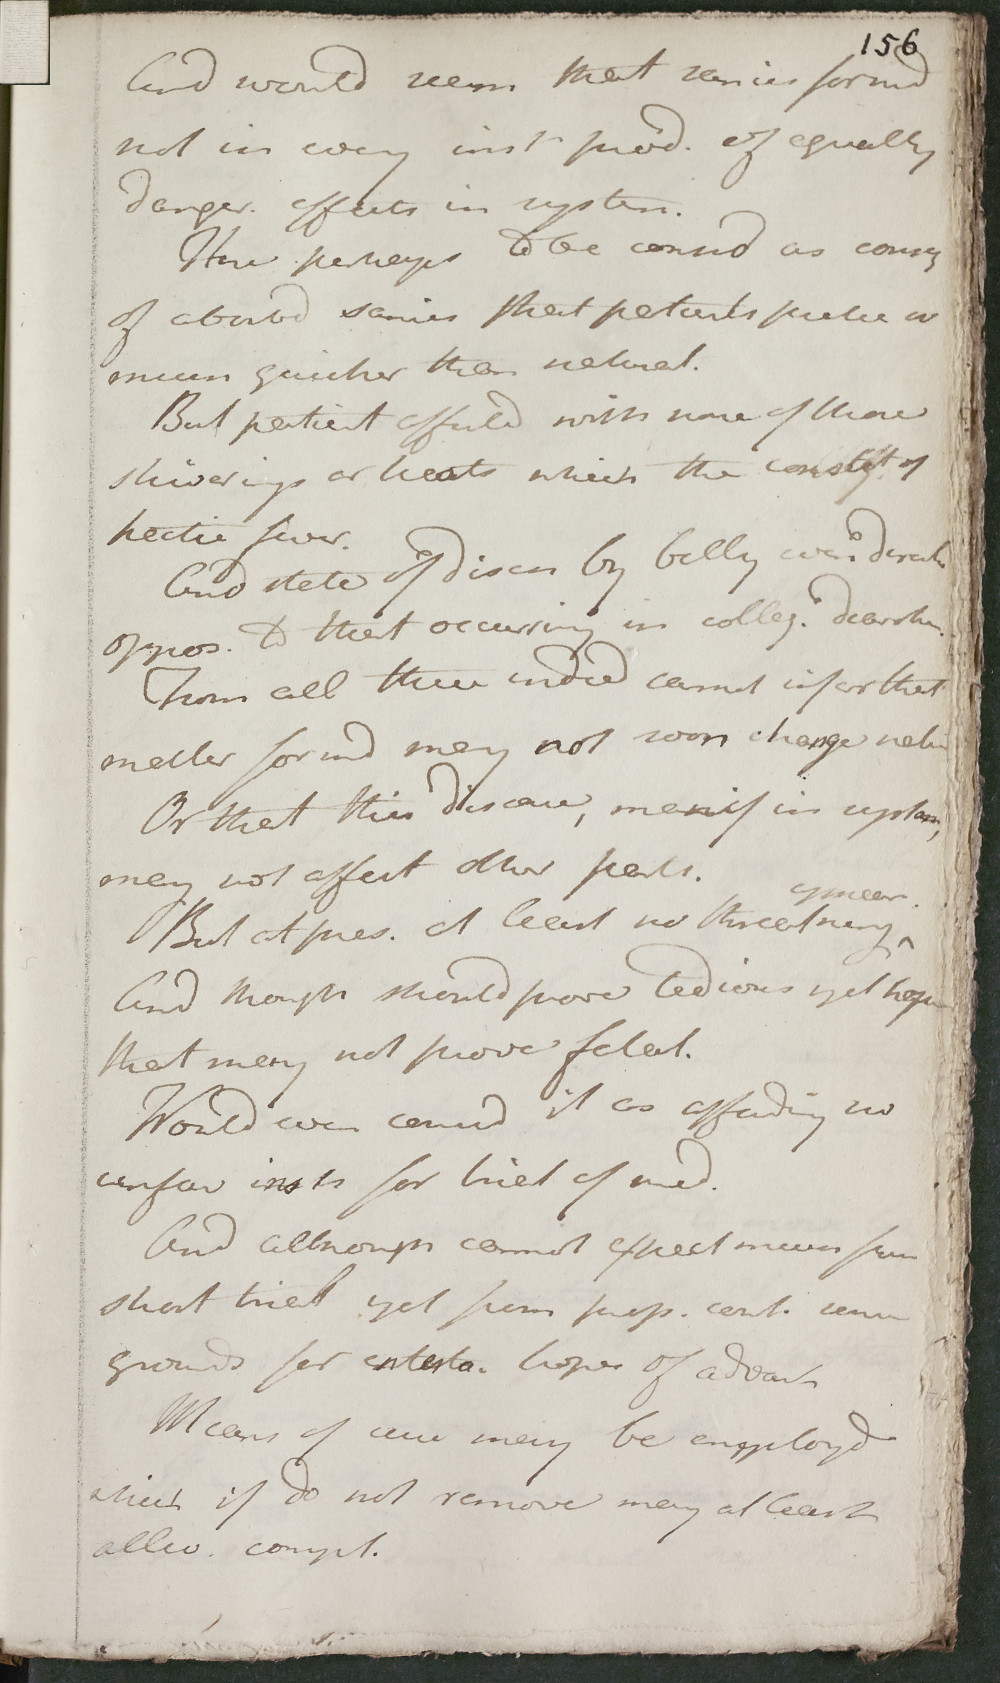 156
And would seem that sanies formd
not in every inst prod. of equally
danger. effects in system.
Here perhaps to be consid as conseq
of absorbd sanies that patients pulse is
much quicker than natural.
But patient affected with none of those
shiverings or heats which the constit. of
hectic fever.
And state of disease by belly even directly
oppos. to that occurring in colliq. diarrhea.
From all these indeed cannot infer that
matter formd may not soon change nature
Or that this disease, manif in system,
may not affect other parts.
appear.
But at pres. at least no threatning
And though should prove tedious yet hope
that may not prove fatal.
Would even consid it as affording no
unfav insts for trial of med.
And although cannot expect much from
short trial yet from prop. cont. some
grounds for enterta. hopes of advant
Means of cure may be employd
which if do not remove may at least
allev. compl.